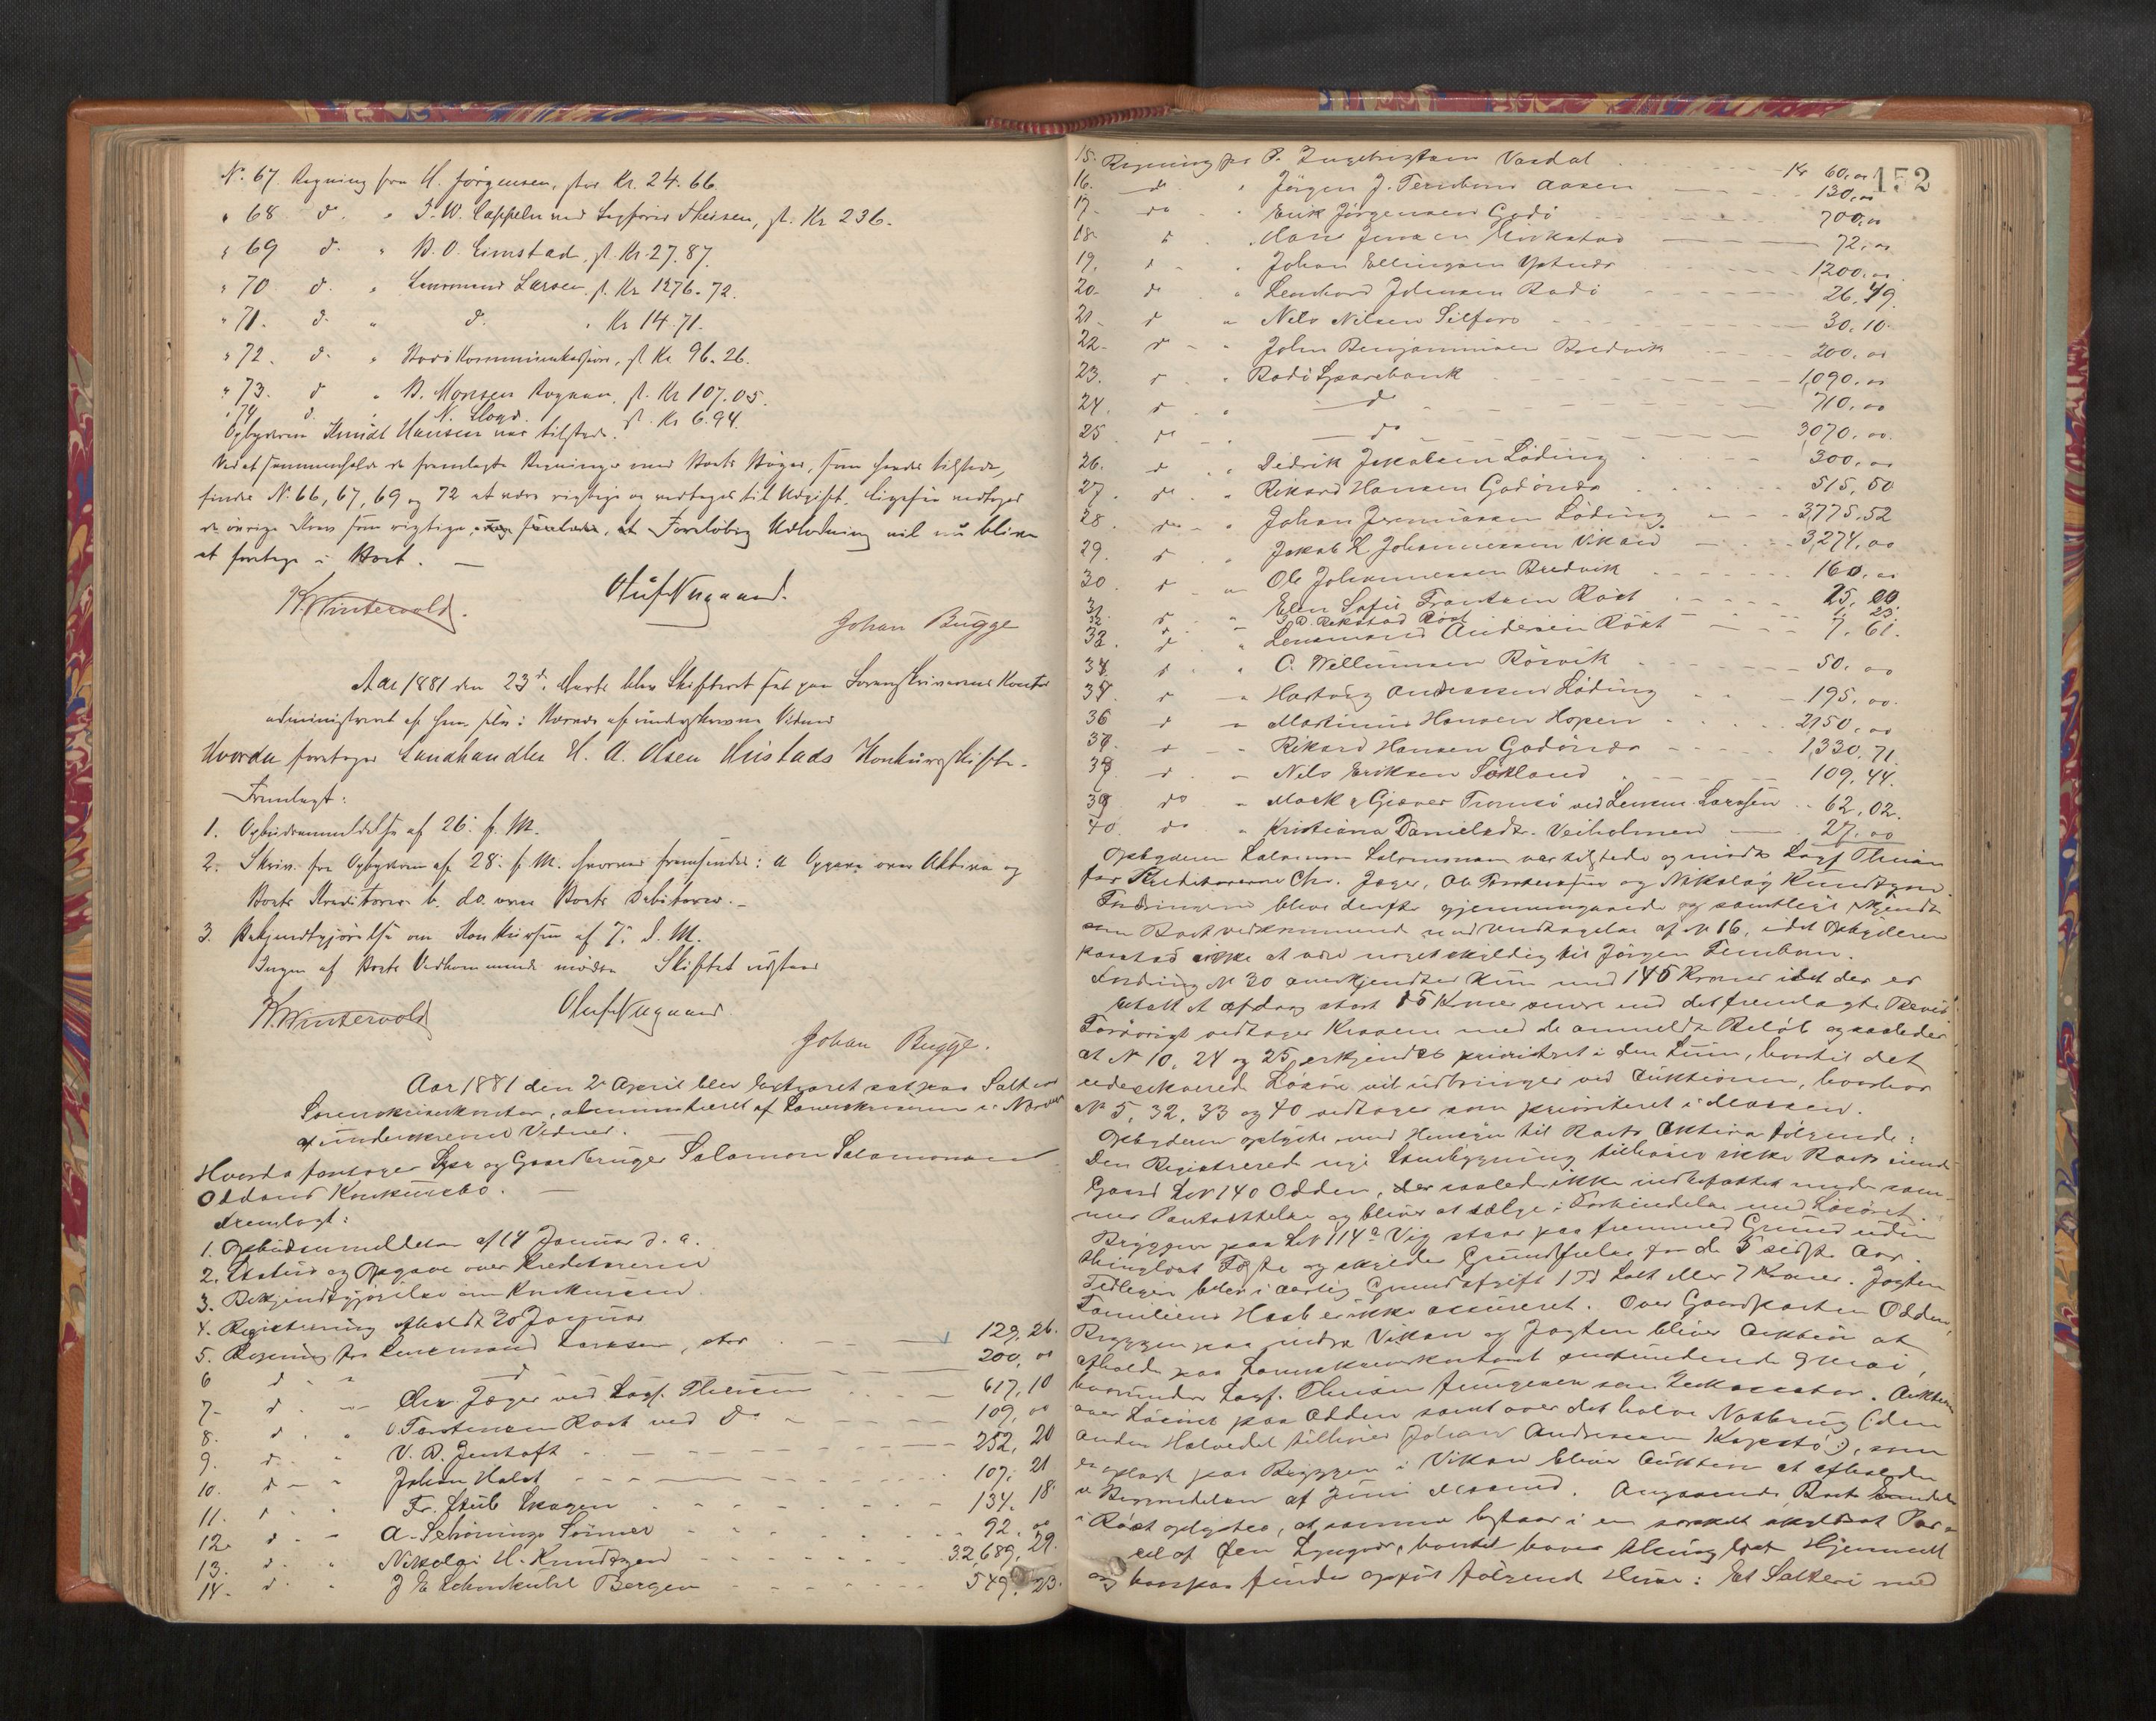 No. 67. Regning fra H. Jörgensen, stor Kr. 24.66.
" 68 d. " J. W. Cappelen ved Sagförer Theisen, st. Kr 236.
" 69 d. " B. O. Eimstad, st. Kr. 27.87.
" 70 d. " Lensmand Larsen, st. Kr 1276.72.
" 71. d. " d. " Kr 14.71.
" 72. d. " Bodö Kommunekasserer, st. Kr 96.26.
" 73. d " B. Monsen Rognan, st. Kr 107.05.
" 74 d. " N. Lloyd st. Kr 6.94.
Opbyderen Knudt Hansen var tilstede.
Ved at sammenholde de fremlagte Regninger med Boets Böger, som havdes tilstede,
findes No. 66, 67, 69 og 72 at være rigtige og vedtages til Udgift. Ligesaa vedtages
de övrige Krav som rigtige, Foreløbig Udlodning vil nu blive
at foretage i Boet. —
K. Wintervold. Oluf Nygaard.
Johan Bugge
Aar 1881 den 23de Marts blev Skifteret sat paa Sorenskriverens Kontor
administreret af ham selv i Nærvær af undertegnede Vidner
Hvorda foretoges Landhandler H. A. Olsen Hustads Konkursskifte.
Fremlagt:
1. Opbudsanmeldelse af 26. f. M.
2. Skriv. fra Opbyderen af 28. f. M. hvorved fremsendes: a Opgave over Aktiva og
Boets Kreditorer b. do. over Boets Debitorer. -
3. Bekjendtgjörelse om Konkursen af 7. d. M.
Ingen af Boets Vedkommende mødte. Skiftet udstaar
K. Wintervold Oluf Nygaard
Johan Bugge.
Aar 1881 den 2 April blev Skifteret sat paa Saltens
Sorenskriverkontor, administreret af Sorenskriveren i Nærvær
af underskrevne Vidner.
Hvorda foretoges og Gaardbruger Salamon Salamonsen
Oddens Konkursbo. —
Fremlagt:
1. Opbudsanmeldelse af 14 Januar d. a.
2. Status og Opgave over Kreditorerne
3. Bekjendtgjörelse om Konkursen
4. Registrering afholdt 20 Januar
5. Regning fra Lensmand Larssen, stor - — 129, 26.
6 d " — d — 200, 00
7- d. - " Chr. Jæger ved Sagf. Theisen — 617, 10
8. d. " O. Torstensen Rost ved do - — 109, 00
9. d. - " V. B. Jentoft - — 252, 20
10. d - " Johan Holst - — 107, 21
11. " . " Fr. Stub Skagen - — 134. 18
12. d - " A. Schönings Sönner - — 92. 00
13. d. " Nikolai H. Knudtzen — 32,689, 29.
14. d. " J E Lehmkuhl Bergen — 549, 23.
152
15. Regning fra P. Ingebrigtsen Vaadal - Kr 60,00
16. — do " Jörgen J. Aasen — 130,00
17 - do " Erik Jörgensen Godö — 700,00
18- d " Hans Jensen — 72,00
19. d - " Johan Ellingsen — 1200,00
20- do " Lenhard Johnsen Bodö — 26,49
21 - d " Nils Nilsen Silfors — 30,10.
22- d - " John Benjaminsen Bredvik — 200,00
23. d " Bodö Sparebank — 1,090,00
24. d " — d — 710,00
25 do - " — do — 3070,00.
26. d . " Didrik Jakobsen Löding — 300,00
27. do. " Rikard Hansen Godönes — 515, 50
28. do - " Johan Jeremiassen Löding — 3,775,52
29. d . " Jakob L. Johannessen Vikan — 3,274,00
30 d - " Ole Johannessen Bredvik — 160,00
31. d " Elen Sofie Frantsen Röst — 25, 00
32. Rekstad Röst — 1. 25
33. d. " Lensmand Andersen Röst — 7. 61.
34 d . " C. Willumsen Rösvik — 50. 00
35 d - " Hartvig Andreassen Löding — 195, 00.
36 d - " Martinus Hansen Hopen — 2150,00
37 d - " Rikard Hansen Godönes — 1,330,71.
38 d . " Nils Eriksen Sörland — 109, 44.
39 do - " Mack & Giæver Tromsö ved Lensm. Larssen .. 62,02.
40 do " Kristiana Danielsdr. Veiholmen — 27,00
Opbyderen Salamon Salamonsen var tilstede og mödte Sagf Theisen
for Kreditorerne Chr. Jæger, Ole Torstensen og Nikolaj Knudtzen.
Fordringerne bleve derefter gjennemgaaede og samtlige erkjendt
som Boet vedkommende med Undtagelse af No 16, idet Opbyderen
paastod ikke at være noget skyldig til Jörgen
Fordring No 30 anerkjendtes kun med 145 Kroner idet der er
betalt et Afdrag stort 15 Kroner senere end det fremlagte Bevis
Forövrigt vedtages Kravene med de anmeldte Belöb og saaledes
at No 10, 24 og 25 erkjendes prioriteret i den Sum, hvortil det
underskrevede Lösöre vil udbringes ved Auktionen, hvorhos
No 5, 32, 33 og 40 vedtages som prioriteret i Massen.
Opbyderen oplyste med Hensyn til Boets Aktiva fölgende:
Den Registrerede nye Stuebygning tilhörer ikke Boets eiende
Gaard LNo 140 Odden, der saaledes ikke indbefattes under sam-
mes Pantsættelse og bliver at sælge i Forbindelse med Lösöret.
Bryggen paa LNo 114a Vig staar paa fremmed Grund uden
thinglæst Fæste og skyldes Grundleie for de 5 sidste Aar.
Tidligere betalt i aarlig Grundafgift 1 Td Salt eller 7 Kroner. Jagten
Familiens Haab er ikke assureret. Over Gaardparten Odden,
Bryggen paa Vikan og Jagten bliver Auktion at
afholde paa Sorenskriverkontoret 9 Mai,
hvorunder Sagf. Theisen fungerer som Inkassator. Auktion
over Lösöret paa Odden samt over det halve Notbrug (den
anden Halvdel tilhörer Johan Andreassen Kopstö), som
er oplagt paa Bryggen i Vikan bliver Auktion at afholde
i Begyndelsen af Juni Maaned. Angaaende Boets
i Röst oplystes, at samme bestaar i en særskilt skyldsat Par-
cel af Öen Lyngvær, hvortil haves thinglæst Hjemmel
og hvorpaa findes opfört fölgende Huse: Et Salteri med